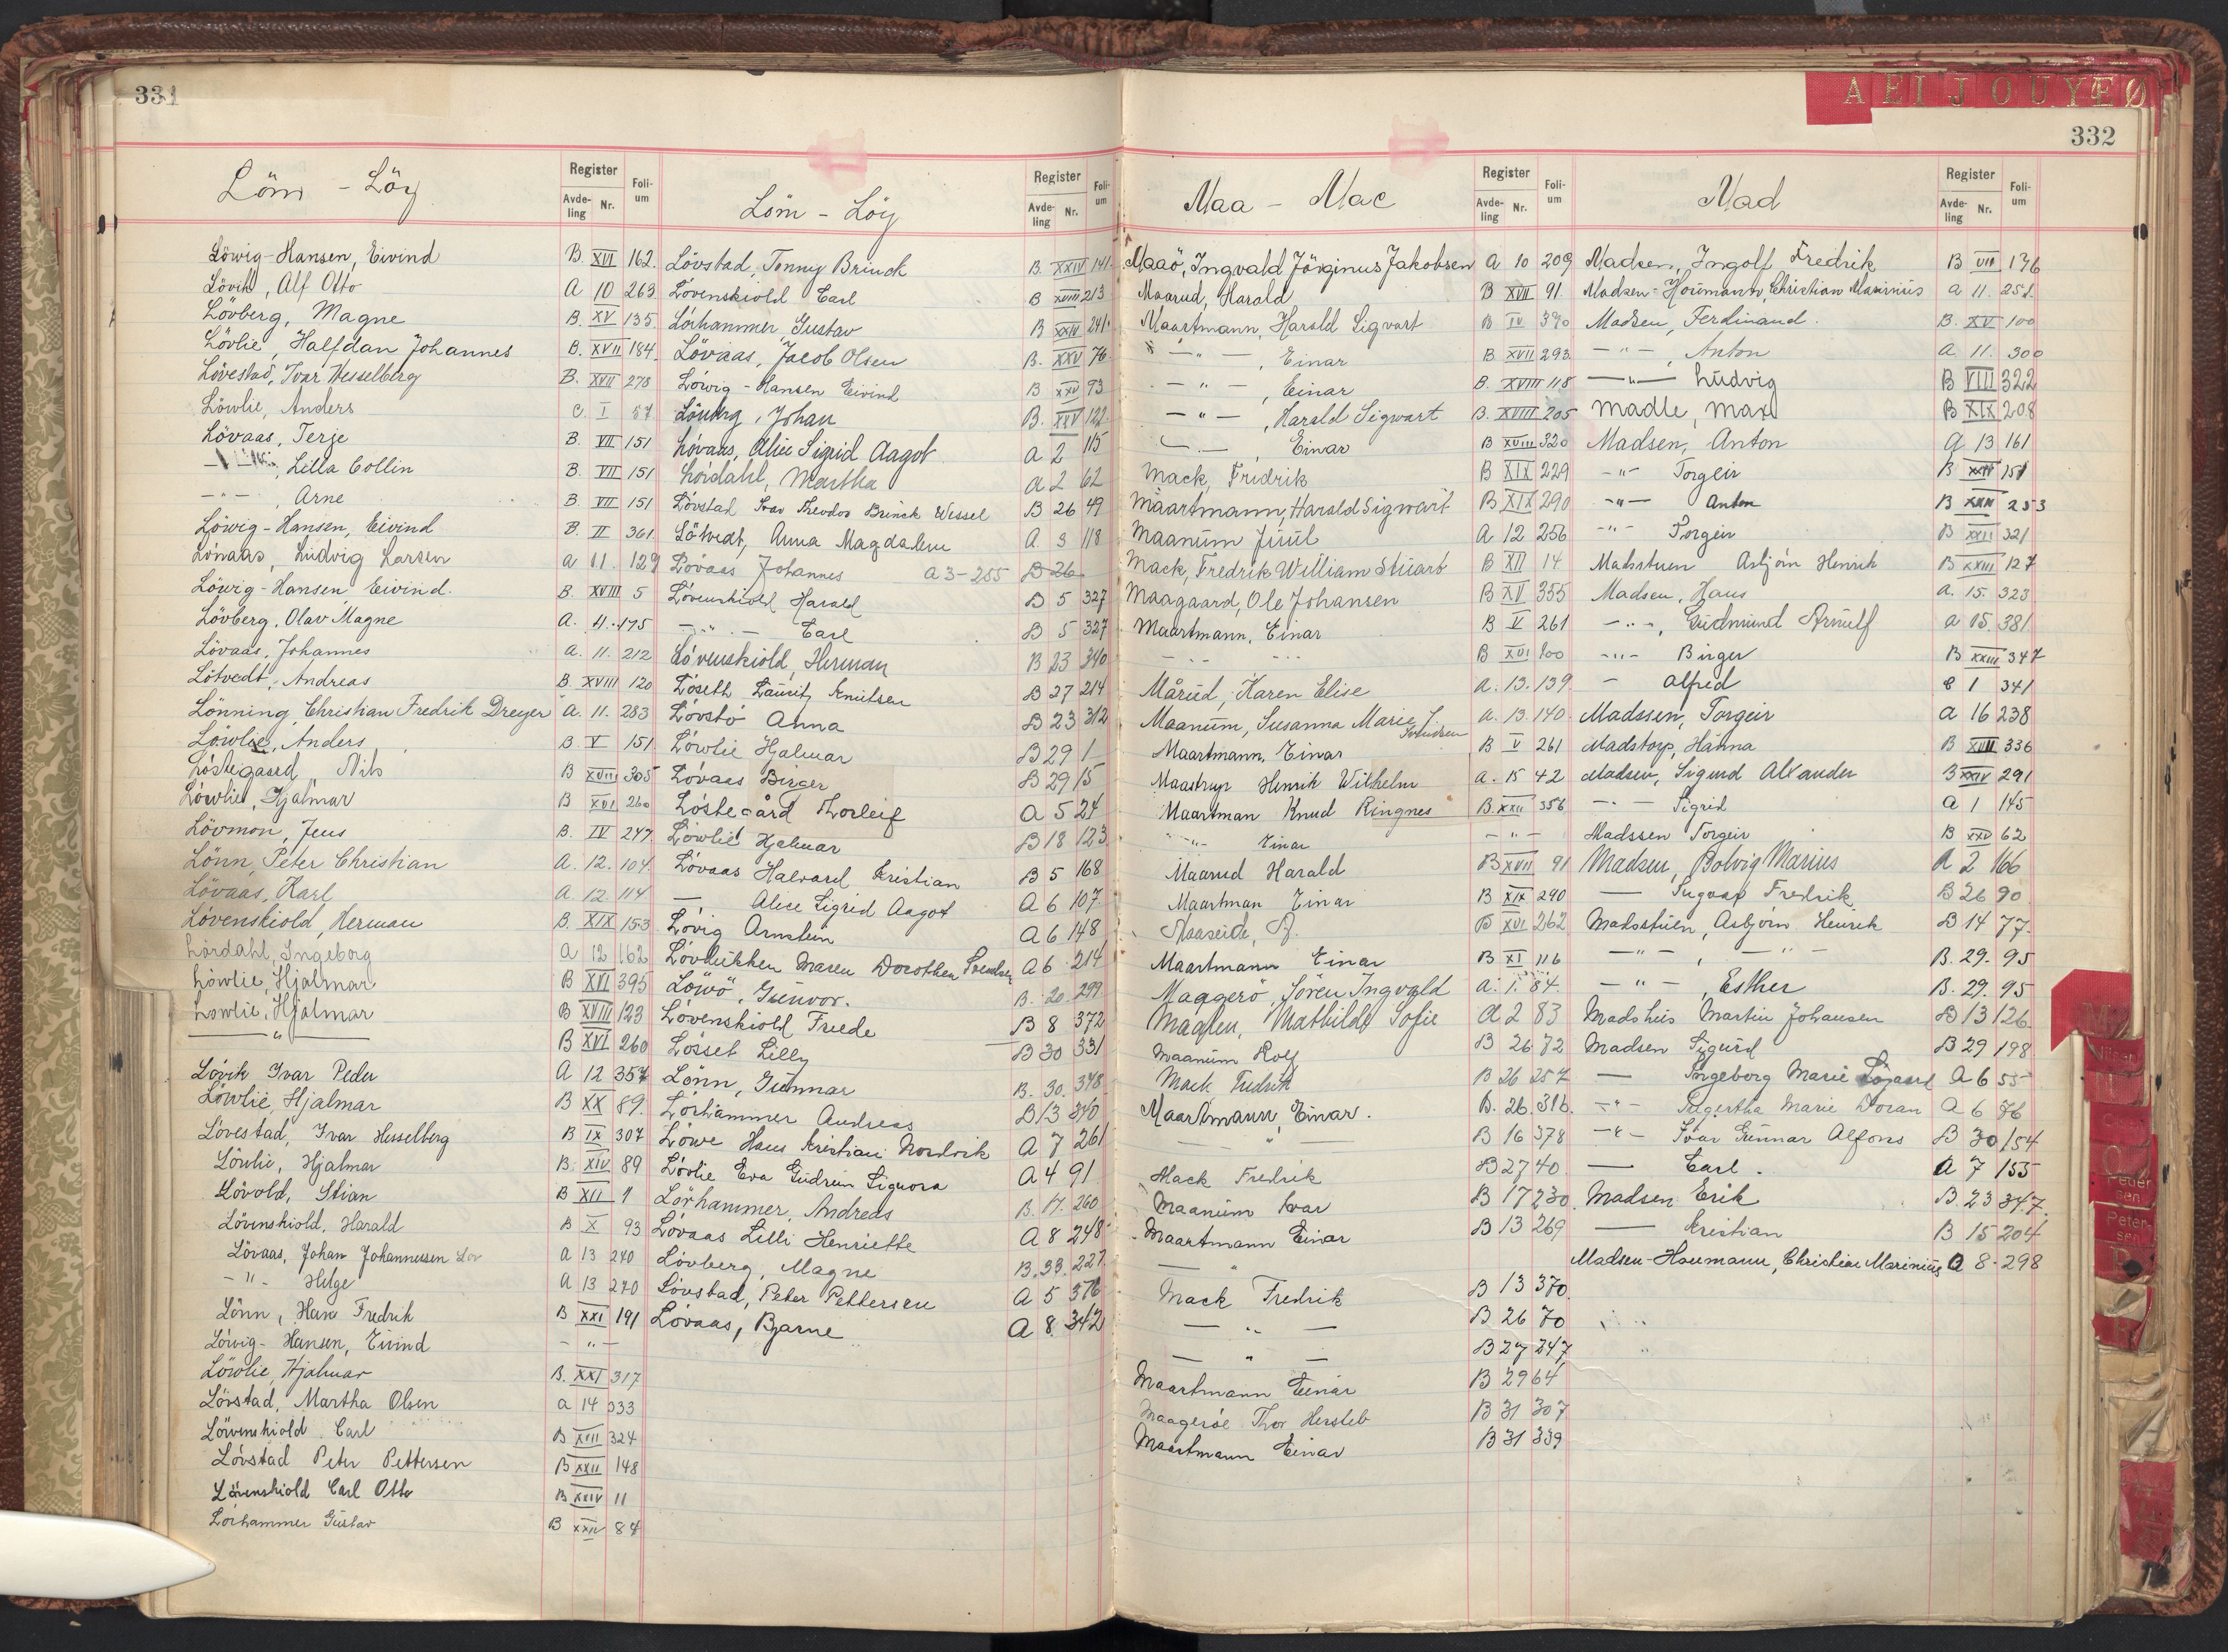 331
Löm - Löy
Register
Avde-ling Nr.
Foli-um
Löwig-Hansen, Eivind B. XVI 162.
Lövik, Alf Otto A 10 263
Lövberg, Magne B. XV 135
Lövlie, Halfdan Johannes B. XVII 184
Lövestad, Ivar Hesselberg B. XVII 278
Löwlie, Anders C. I 57
Lövaas, Terje B. VII 151
Lilla Collin B. VII 151
- " - Arne B. VII 151
Löwig-Hansen, Eivind B. II 361
Lövaas, Ludvig Larsen a 11. 129
Löwig-Hansen Eivind. B. XVIII 5
Lövberg, Olav Magne A. 11. 175
Lövaas, Johannes a. 11. 212
Lötvedt, Andreas B. XVIII 120
Lönning, Christian Fredrik Dreyer a. 11. 283
Löwlie, Anders B V 151
Löstegaard, Nils B XVIII 305
Löwlie, Hjalmar B XVI 260
Lövmon, Jens B. IV 247
Lönn, Peter Christian A. 12. 104
Lövaas, Karl A 12. 114
Lövenskiold, Herman B. XIX 153
Lördahl, Ingeborg A 12 162
Löwlie, Hjalmar B XVI 395
Löwlie, Hjalmar B XVIII 123
— " — B XVI 260
Lövik Ivar Peder A 12 357
Löwlie, Hjalmar B XX 89
Lövestad, Ivar Hesselberg B IX 307
Löwlie, Hjalmar B. XIV 89
Lövold, Stian B XII 1
Lövenskiold, Harald B X 93
Lövaas, Johan Johannessen A 13 240
- " - Helge A 13 240
Lönn, Hans Fredrik B XXI 191
Löwig-Hansen, Eivind - " -
Löwlie, Hjalmar B. XXI 317
Lövstad, Martha Olsen a 14 333
Lövenskiold Carl B XXIII 324
Lövstad Peter Pettersen B XXII 148
Lövenskiold Carl Otto B XXIV 11
Lörhammer Gustav B XXIV 84
Löm - Löy
Register
Avde-ling Nr.
Foli-um
Lövstad, Tonny Brinck B. XXIV 141.
Lövenskiold Carl B XVIII 213
Lörhammer, Gustav B XXIV 241.
Lövaas, Jacob Olsen B. XXV 76
Löwig-Hansen Eivind B XXV 93
Johan B. XXV 122
Lövaas, Alice Sigrid Aagot a 2 115
Lördahl, Martha a 2 62
Lövstad Ivar Theodor Brinck Wessel B 26 49
Lötvedt, Anna Magdalene A. 3 118
Lövaas Johannes a 3-255 B 26
Lövenskiold Harald B 5 327
- " - Carl B 5 327
Lövenskiold, Herman B 23 340
Löseth Lauritz Knutsen B 27 214
Lövstö Anna B 23 312
Löwlie Hjalmar B 29 1
Lövaas Birger B 29 15
Löstegård Thorleif A 5 24
Löwlie Hjalmar B 18 123
Lövaas Halvard Kristian B 5 168
— Alice Sigrid Aagot A 6 107
Lövig Arnstein A 6 148
Lövlükken Maren Dorothea Svendsen A 6 214
Löwö, Gunvor. B. 20. 299
Lövenskiold Freede B 8 372
Lösset Lilly B 30 331
Lönn, Gunnar B. 30. 348
Lörhammer Andreas B 13 340
Löwe Hans Kristian Nordvik A 7 261
Lövlie Eva Gudrun Signora A 4 91
Lörhammer, Andreas B. 17. 260
Lövaas Lilli Henriette A 8 248
Lövberg, Magne B. 33. 227
Lövstad, Peter Pettersen A 5 376
Lövaas, Bjarne A 8. 342
AEIJOUYÆØ
332
Maa - Mac
Register
Avde-ling Nr.
Foli-um
Maaö, Ingvald Jörginus Jakobsen A 10 209
Maarud, Harald B XVII 91
Maartmann, Harald Sigvart B IV 390
- " - , Einar B XVII 293
- " - , Einar B. XVIII 118
- " - , Harald Sigwart B. XVIII 205
— , Einar B XVIII 320
Mack, Fridrik B XIX 229
Maartmann, Harald Sigwart B XIX 290
Maanum Juul A 12 256
Mack, Fredrik William Stuart B XII 14
Maagaard, Ole Johansen B XV 355
Maartmann, Einar B V 261
B XVI 200
Mårud, Karen Elise a. 13. 139
Maanum, Susanna Marie J. Svendsen a. 13. 140
Maartmann, Einar B V 261
Maastrup Henrik Wilhelm a. 15 42
Maartman Knud Ringnes B. XXII 356
- " - Einar - " -
Maarud Harald B XVII 91
Maartman Einar B XIX 290
Maaseide, B XVI 262
Maartmann Einar B XI 116
Maagerö, Sören Ingvald a. 1. 84
Maalen, Mathilde Sofie A 2 83
Maanum Rolf B 26 72
Mack Fredrik B 26 257
Maartmann, Einar. B. 26. 316
— " — B 16 378
Mack Fredrik B 27 40
Maanum Ivar B 17 230
Maartmann Einar B 13 269
— "
Mack Fredrik B 13 370
— " — B 26 70
— " — B 27 247
Maartmann Einar B 29 64
Maageröe Thor Hersleb B 31 307
Maartmann Einar B 31 339
Mad
Register
Avde-ling Nr.
Foli-um
Madsen, Ingolf Fredrik B VII 136
Madsen-Houmann, Christian Marinius a 11. 251
Madsen, Ferdinand. B. XV 100
- " - , Anton a. 11. 300
— " — Ludvig B VIII 322
Madle, Max B XIX 208
Madsen, Anton a 13 161
- " - Torgeir B XXIV 151
- " - Anton B XXII 253
- " - Torgeir B XXII 321
Madsstuen Asbjörn Henrik B XXIII 127
Madsen, Hans a. 15. 323
- " - , Gudmund Arnulf a 15. 381
- " - Birger B XXIII 347
- Alfred 1 341
Madssen, Torgeir a 16 238
Madstorp, Hanna B XVII 336
Madsen, Sigurd Alexander B XXIV 291
- " - Sigrid A 1 145
Madssen Torgeir B XXV 62
Madsen, Solvig Marius A 2 166
— Ingvar Fredrik B 26 90
Madsstuen, Asbjörn Henrik B 14 77.
- " - , - " - B. 29. 95
- " - , Esther B. 29. 95
Madshus Martin Johansen B 13 126
Madsen Sigurd B 29 198
— Ingeborg Marie A 6 55
- " - Ingertha Marie Doran A 6 76
- " - Ivar Gunnar Alfons B 30 154
— Carl. A 7 155
Madsen Erik B. 23 347.
— Kristian B 15 204
Madsen-Haumann, Christian Marinius A 8. 298
Peder sen
Peter-sen